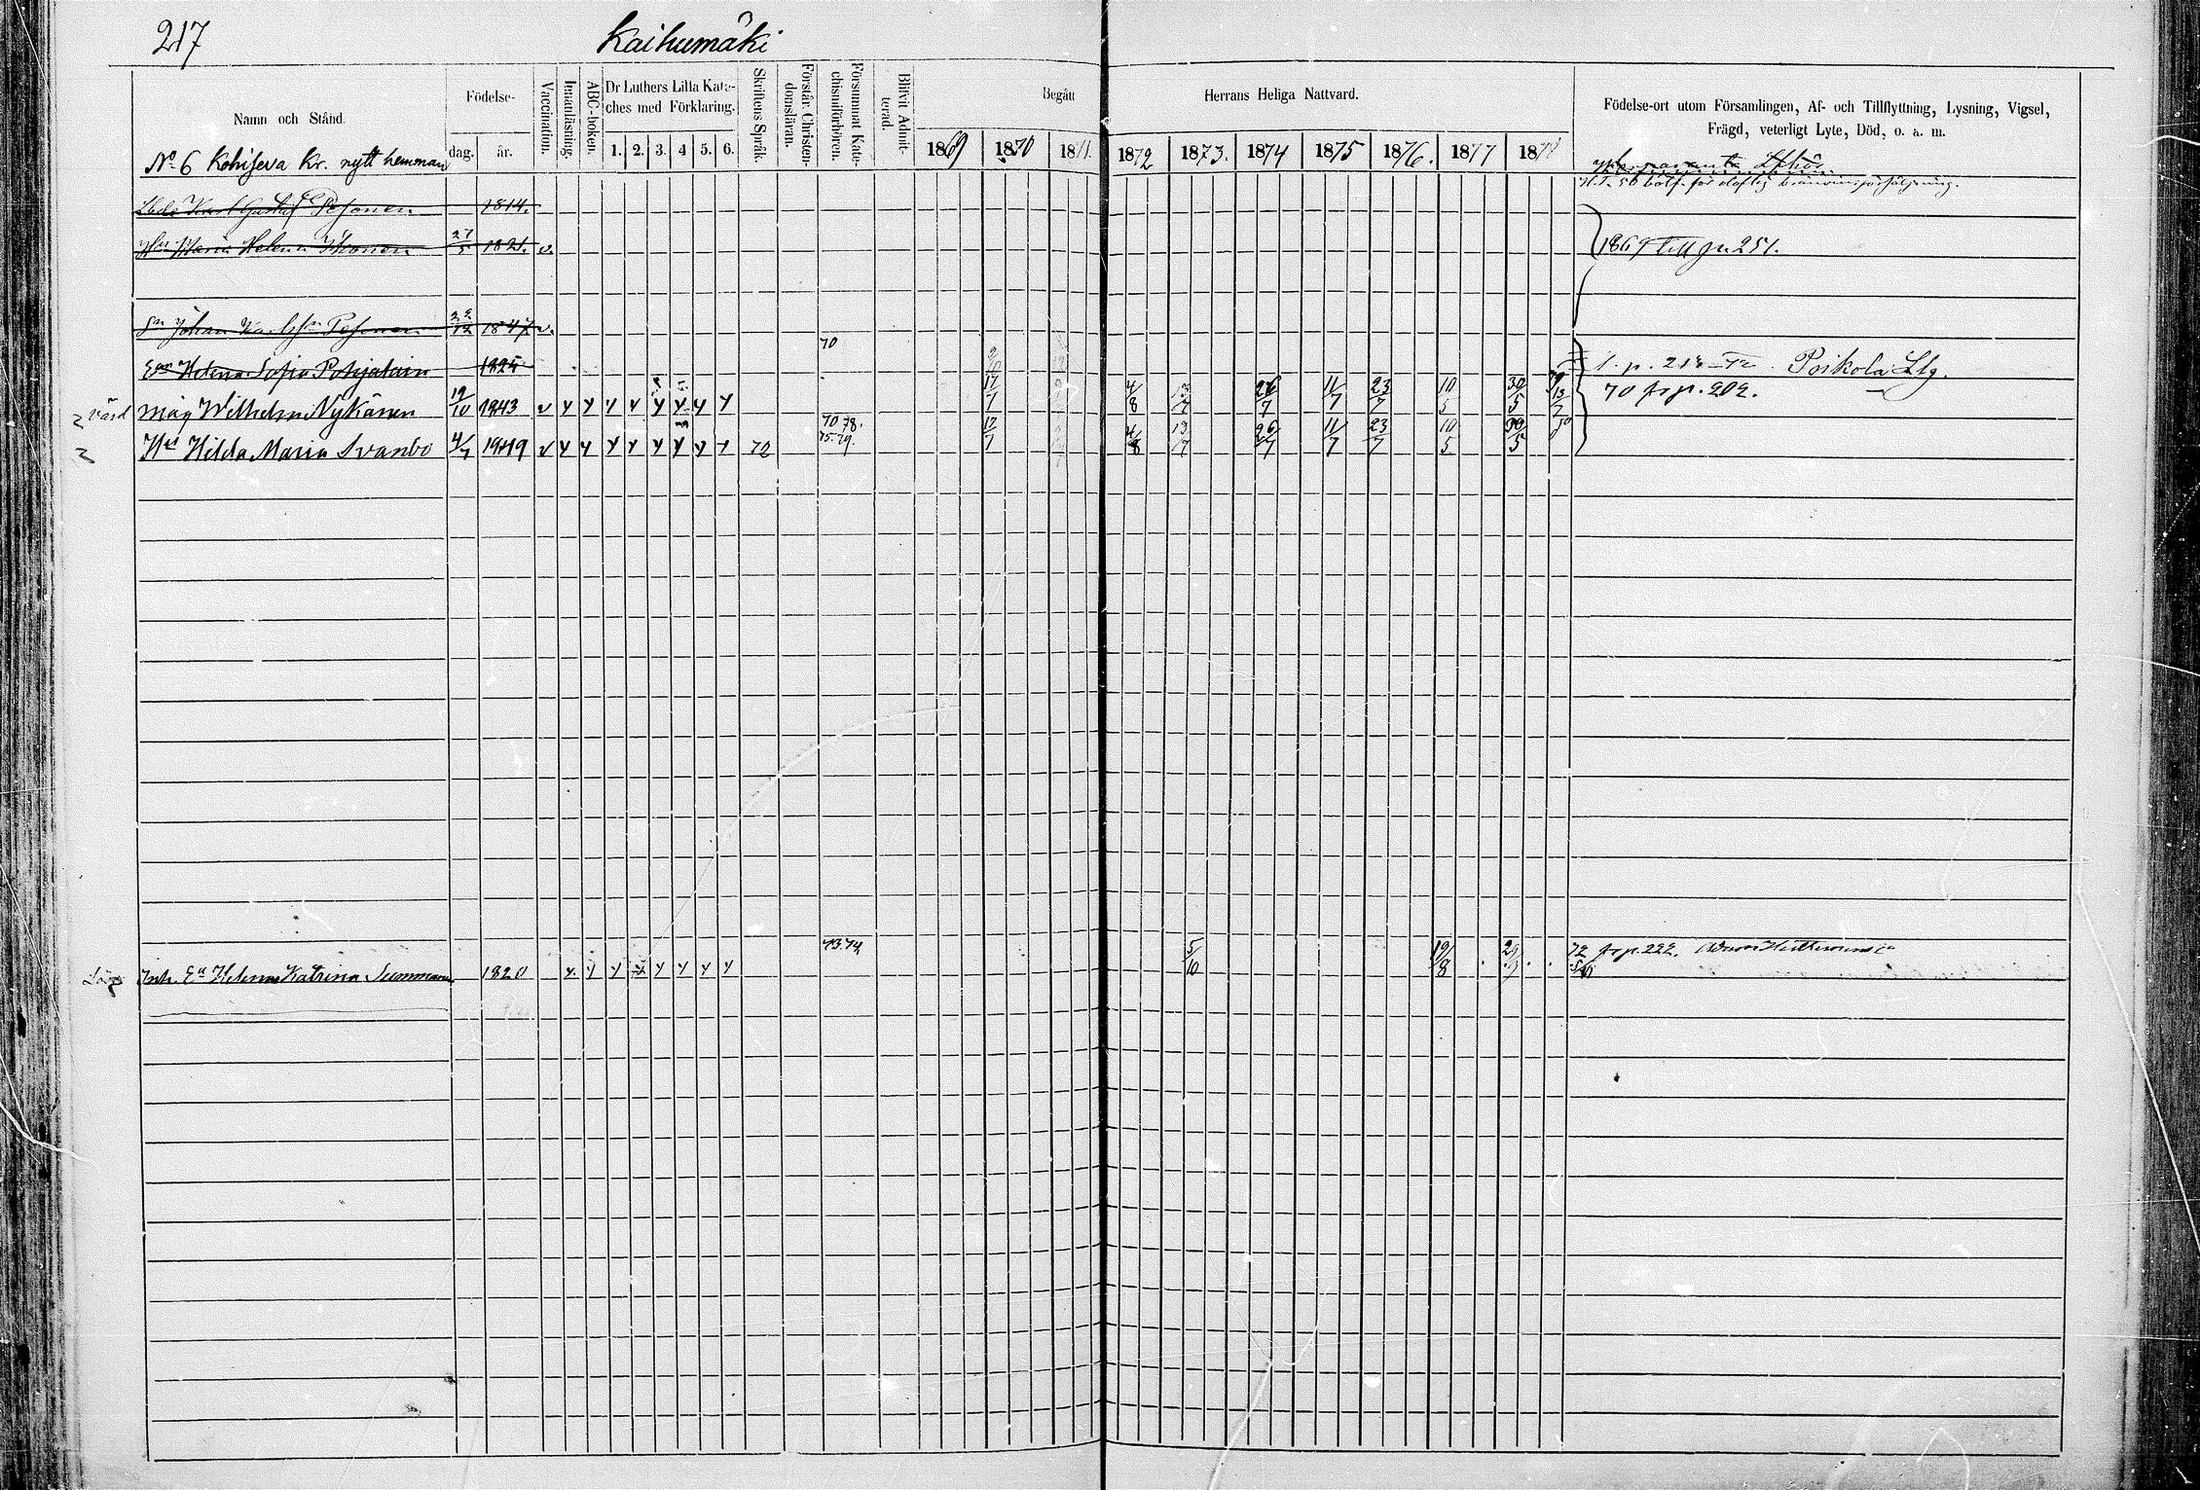 217
Kaihumäki
Namn och Stånd.
Födelse-
dag. år.
Vaccination.
Innanläsning.
ABC-boken.
Dr Luthers Lilla Kate-
ches med Förklaring.
1. 2. 3. 4 5. 6.
Skriftens Språk.
Förstår Christen-
domsläran.
Försummat Kate-
chismiförhören.
Blifvit Admit-
terad.
Begått
Herrans Heliga Nattvard.
1869 1870 1871. 1872 1873. 1874 1875 1876. 1877 1878
Födelse-ort utom Församlingen, Af- och Tillflyttning, Lysning, Vigsel,
Frägd, veterligt Lyte, Död, o. a. m.
No 6 Kohiseva Kr. nytt hemman
Karl Gustaf Pesonen 1814.
Hu Maria Helena 27/5 1821. v.
1869 till pn 251.
Sn Johan Karlsson Pesonen 22/12 1847 v.
70
Helena Sofia Pohjalain 1825
Poikola Llg.
Måg Wilhelm Nykänen 19/10 1843 v y y y v y y y y 17/7 4/8 13/7 26/7 11/7 23/7 10/5 30/5
70 fr p. 202.
70 78.
75. 79.
Hu Hilda Maria Svanbo 4/7 1849 v y y y y y y y y 72 17/7 4/8 13/7 26/7 11/7 23/7 10/5 30/5
73.74
Inh. Ea Helena Katrina Summanen 1820 y. y y y y y y y 5/10 19/8
72 fr p. 222.